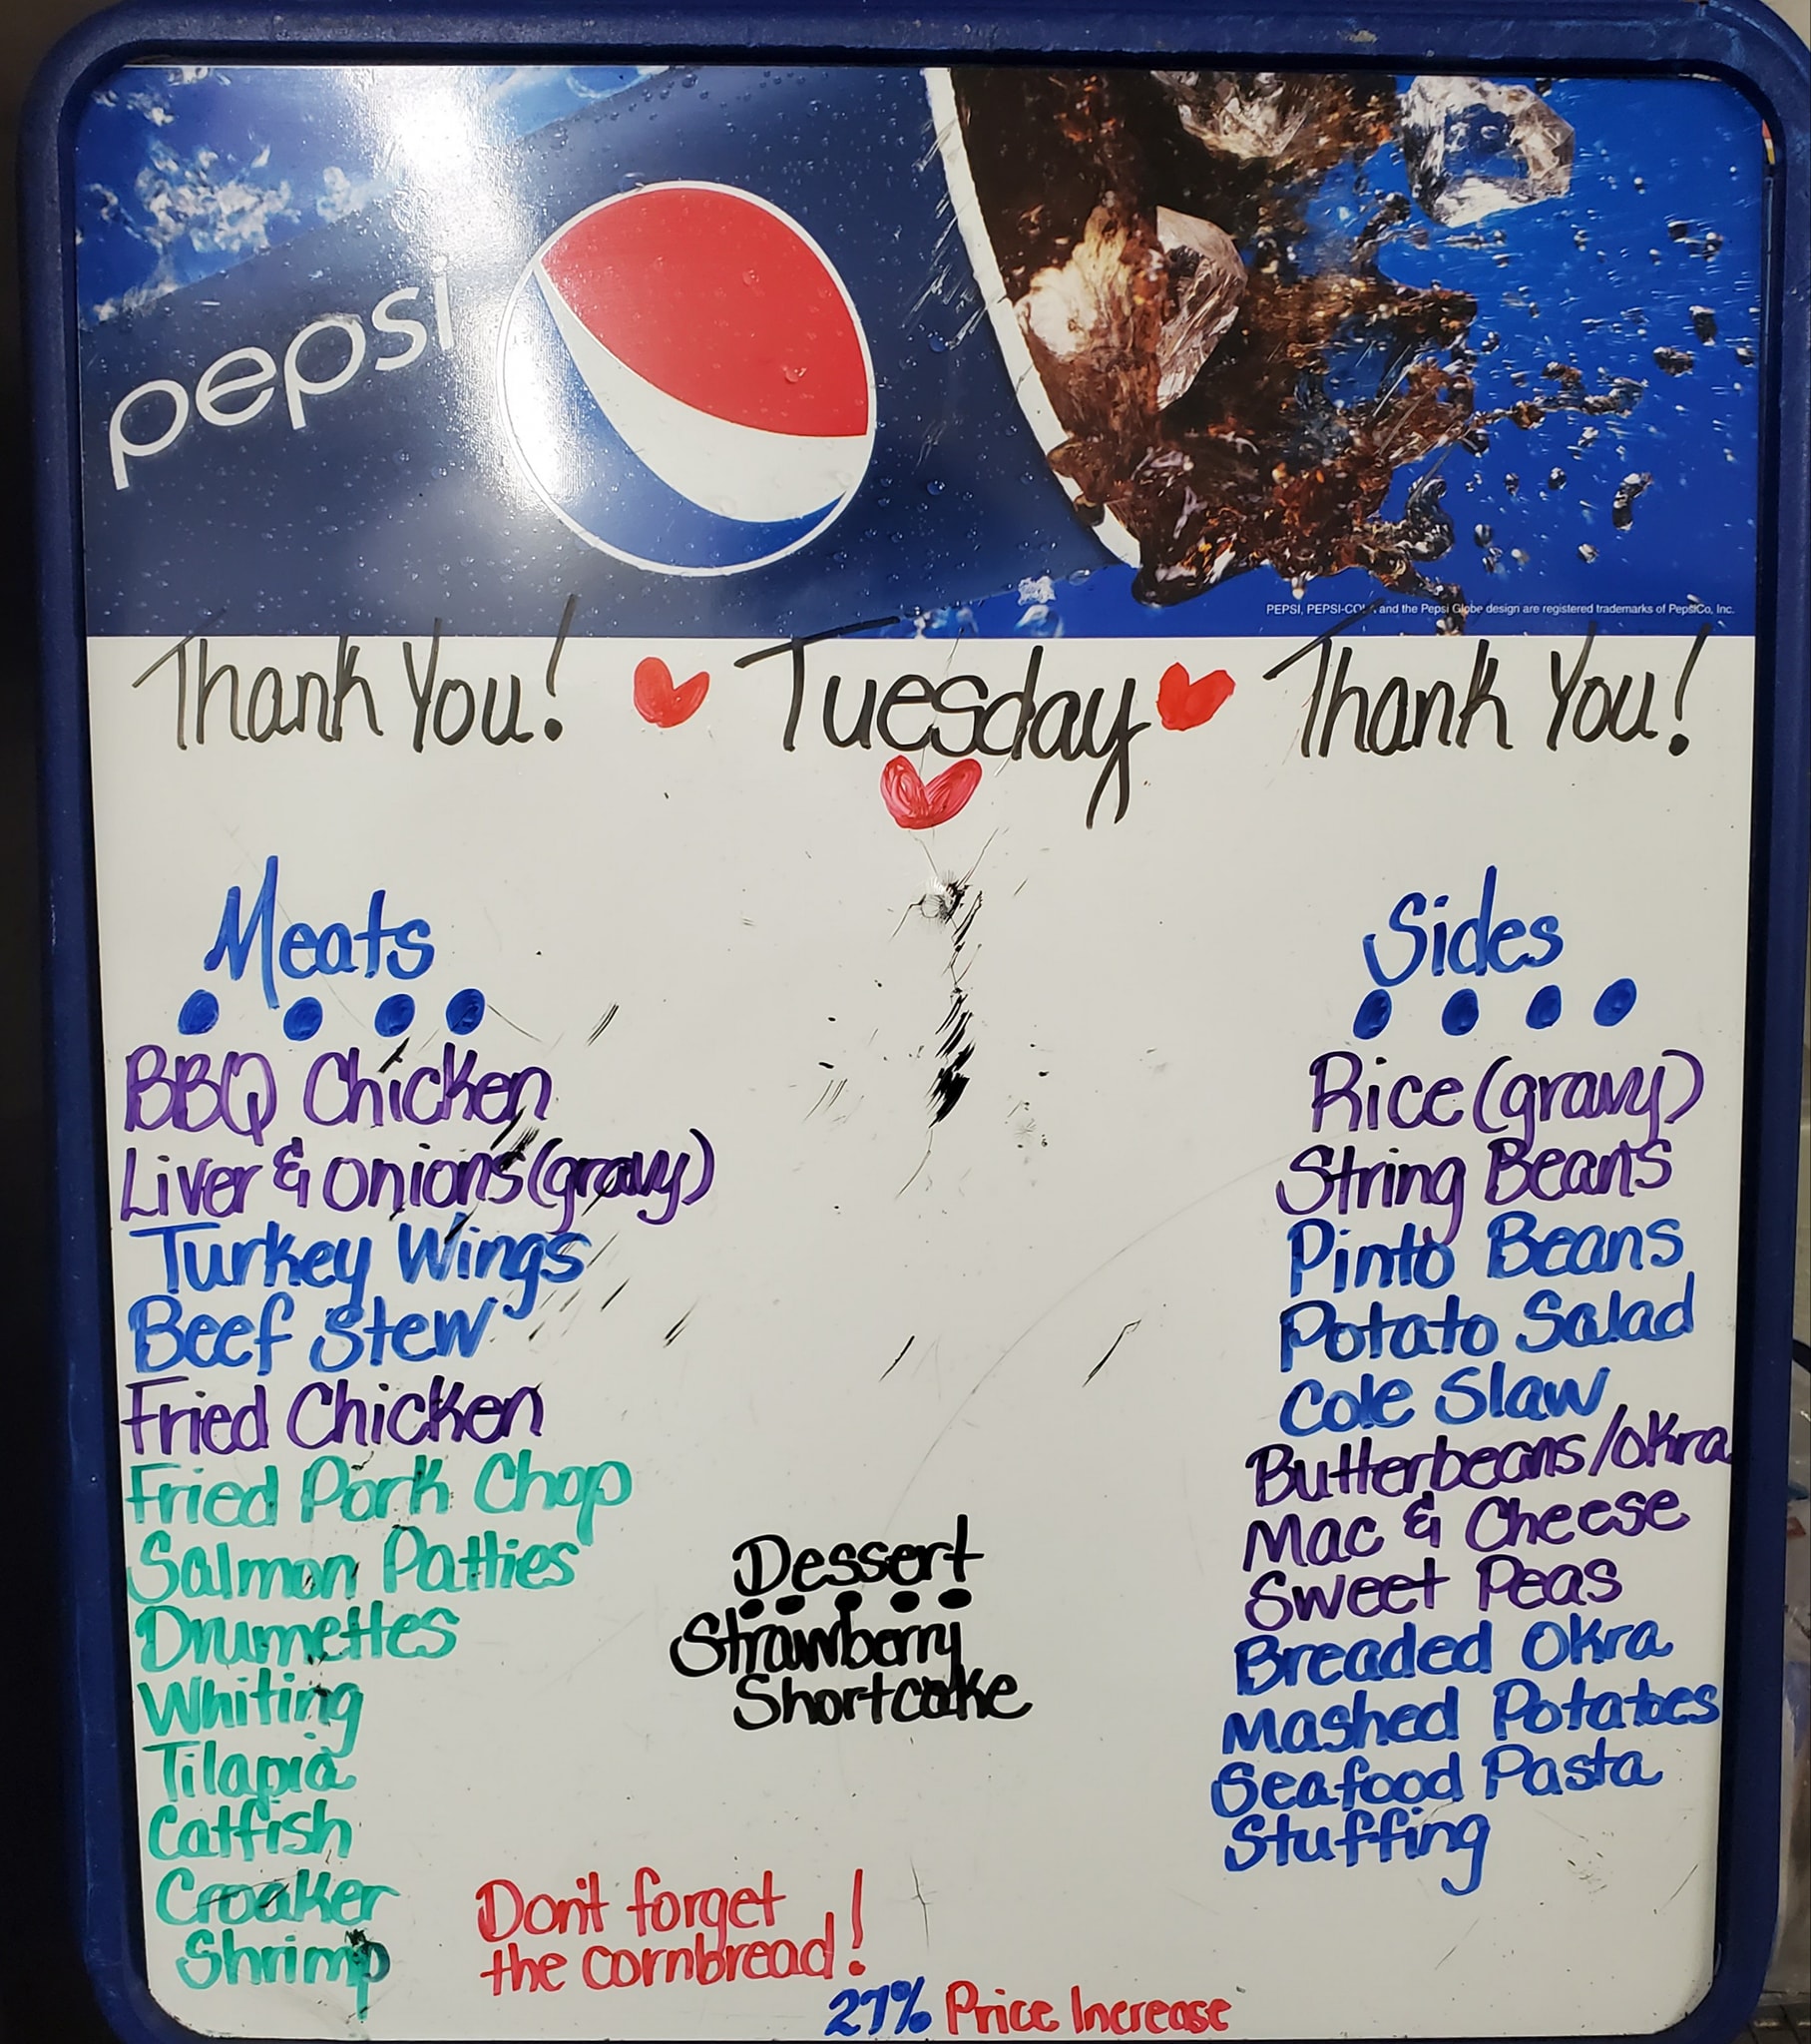 pepsi
PEPSI, PEPSI-COLA and the Pepsi Globe design are registered trademarks of PepsiCo, Inc.
Thank You! Tuesday Thank You!
Meats
BBQ Chicken
Liver & Onions (gravy)
Turkey Wings
Beef Stew
Fried Chicken
Fried Pork Chop
Salmon Patties
Drumettes
Whiting
Tilapia
Catfish
Croaker
Shrimp
Dessert
Strawberry
Shortcake
Don't forget
the cornbread!
27% Price Increase
Sides
Rice (gravy)
String Beans
Pinto Beans
Potato Salad
Cole Slaw
Butterbeans/Okra
Mac & Cheese
Sweet Peas
Breaded Okra
Mashed Potatoes
Seafood Pasta
Stuffing